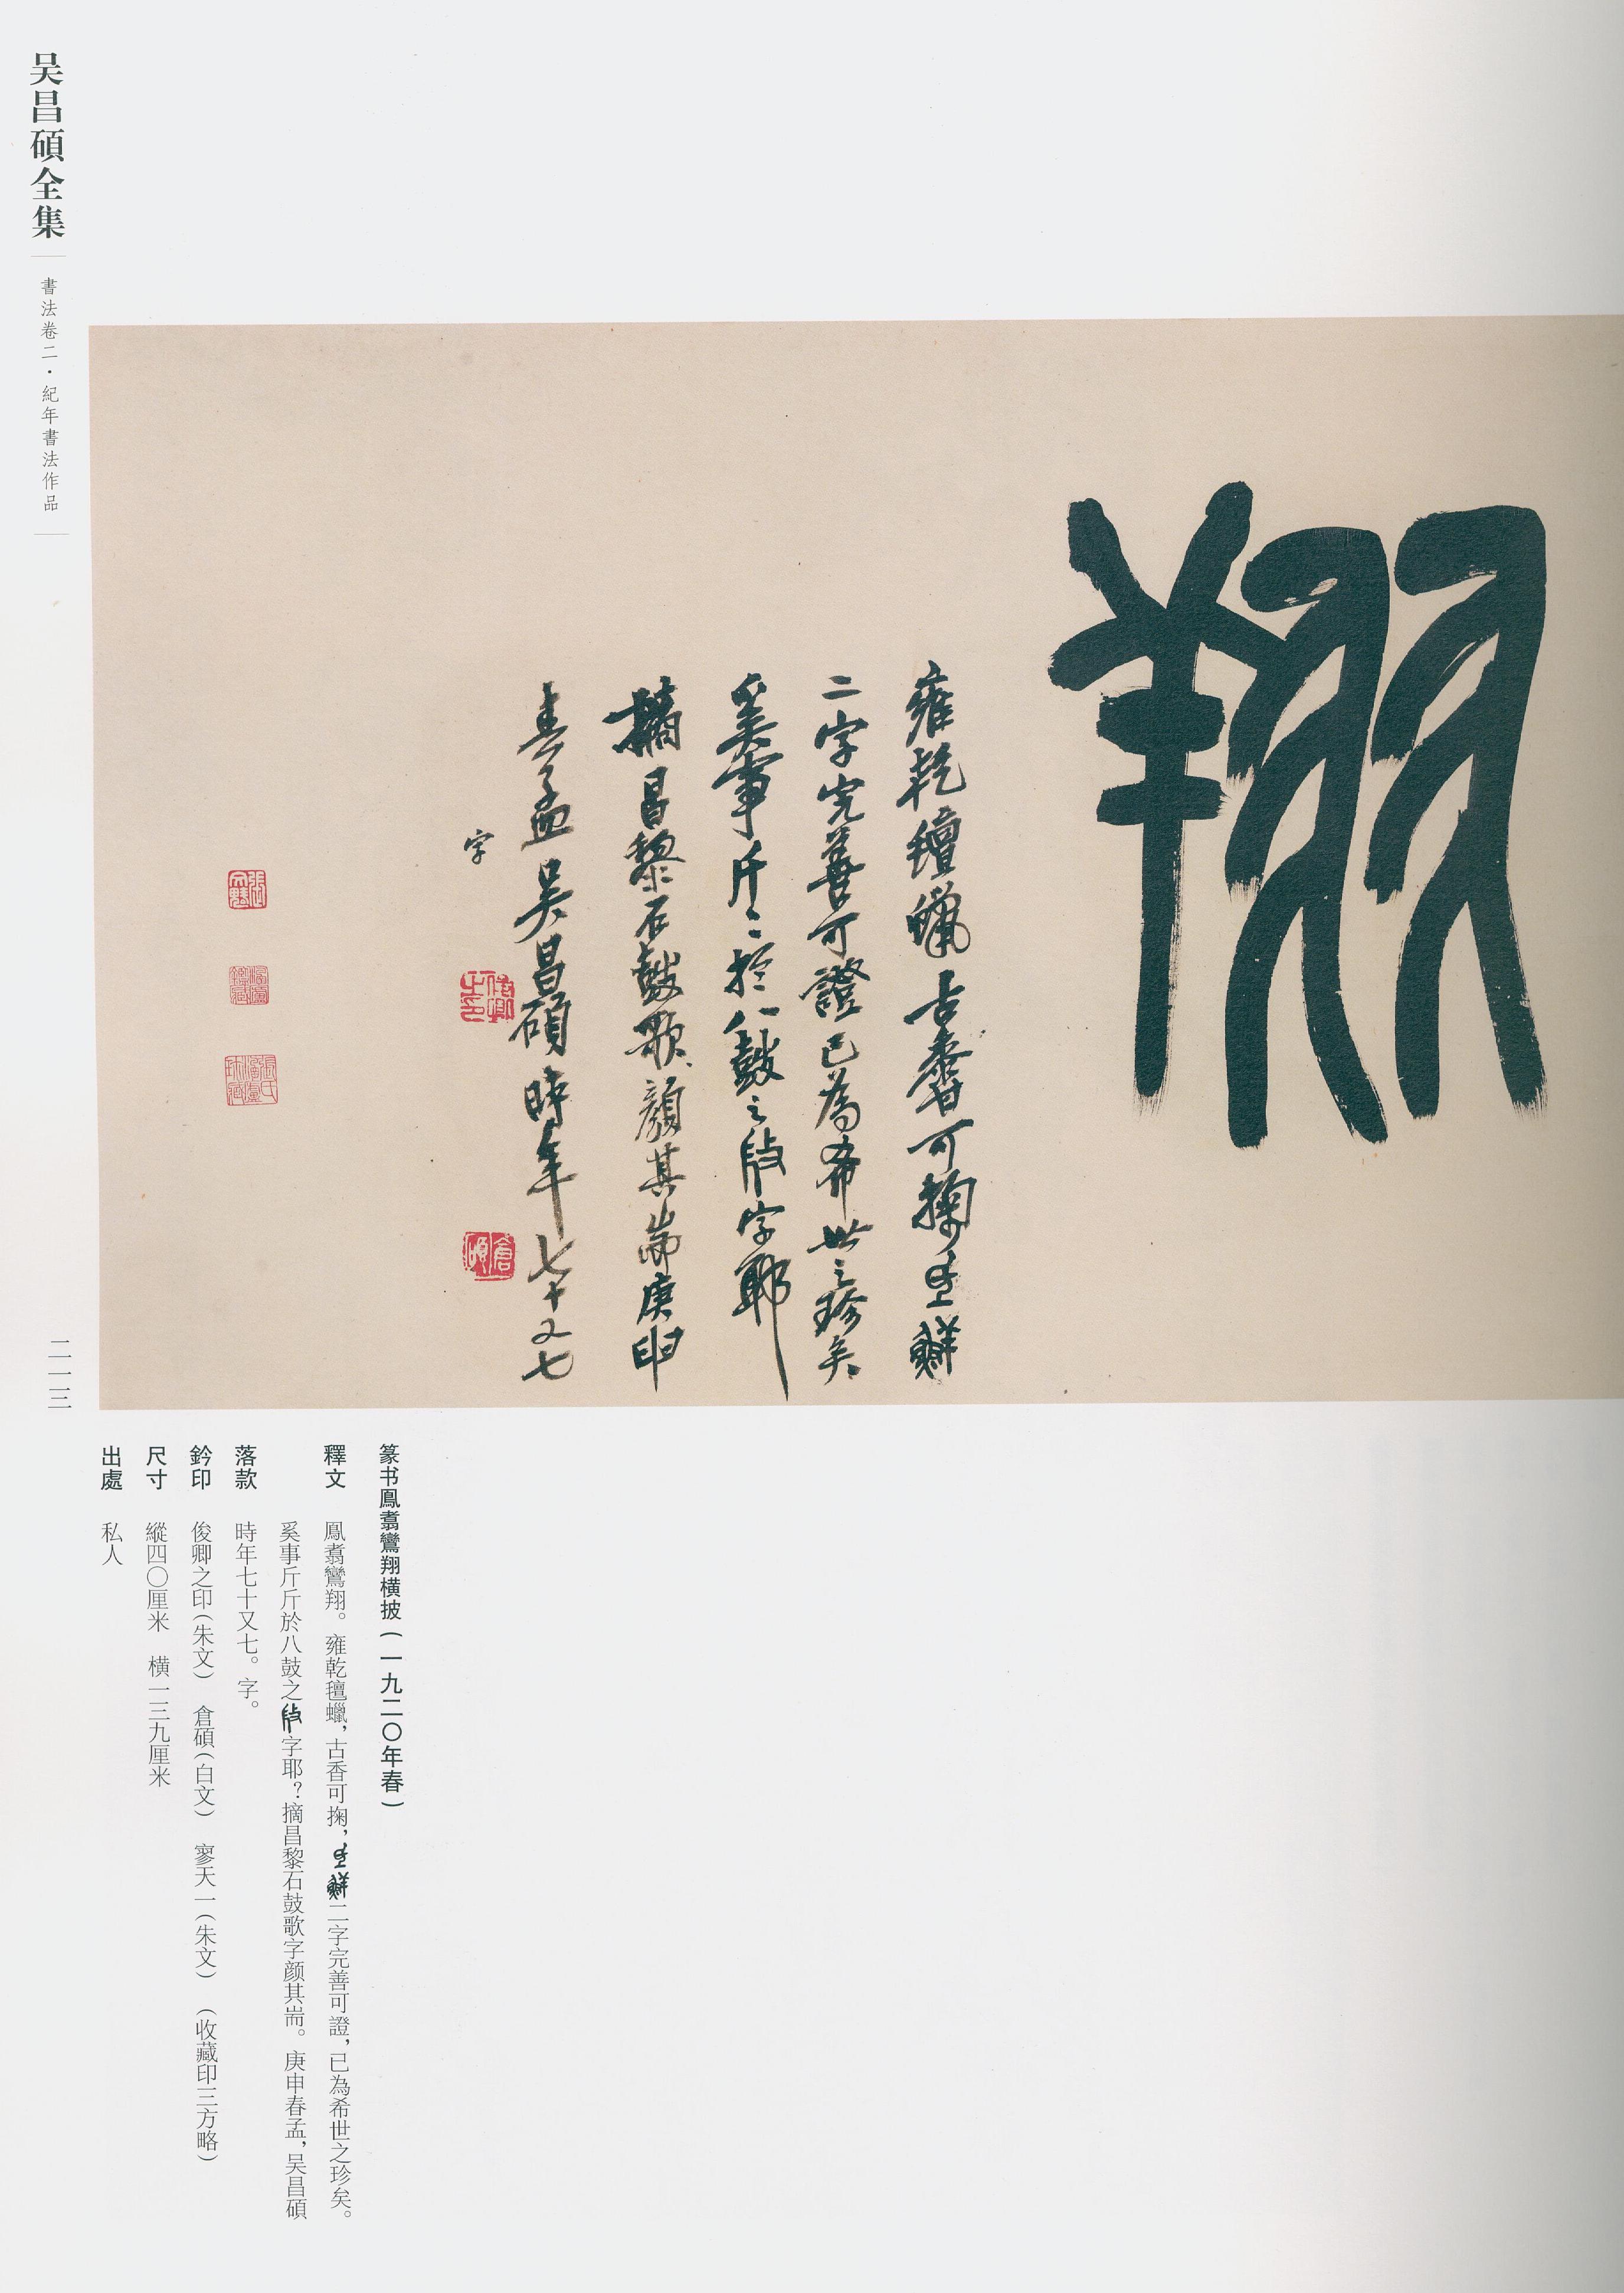 吴昌碩全集
書法卷二·紀年書法作品
二一三
翔
雍乾氊蠟古香可掬 鱻
二字完善可證已為希世之珍矣
奚事斤〻於八鼓之 字耶
摘昌黎石鼓歌顏其耑庚申
春孟吴昌碩時年七十又七
字
俊卿之印
倉碩
篆书鳳翥鸞翔横披(一九二〇年春)
釋文 鳳翥鸞翔。雍乾氊蠟,古香可掬, 二字完善可證,已為希世之珍矣。
奚事斤斤於八鼓之 字耶?摘昌黎石鼓歌字颜其耑。庚申春孟,吴昌碩
落款 時年七十又七。字。
鈐印 俊卿之印(朱文) 倉碩(白文) 寥天一(朱文) (收藏印三方略)
尺寸 縱四〇厘米 横一三九厘米
出處 私人